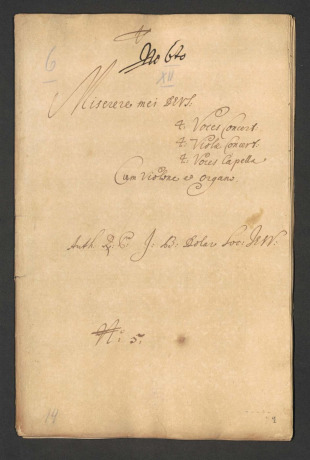 No 6to
6
XII
Miserere mei DEVS:
4 Voces Concert
4 Viole Concert
4 Voces Capella
Cum Violone ac Organo.
Auth. R: P. J. B: Dolar Soc: JESV.
N: 5.
14